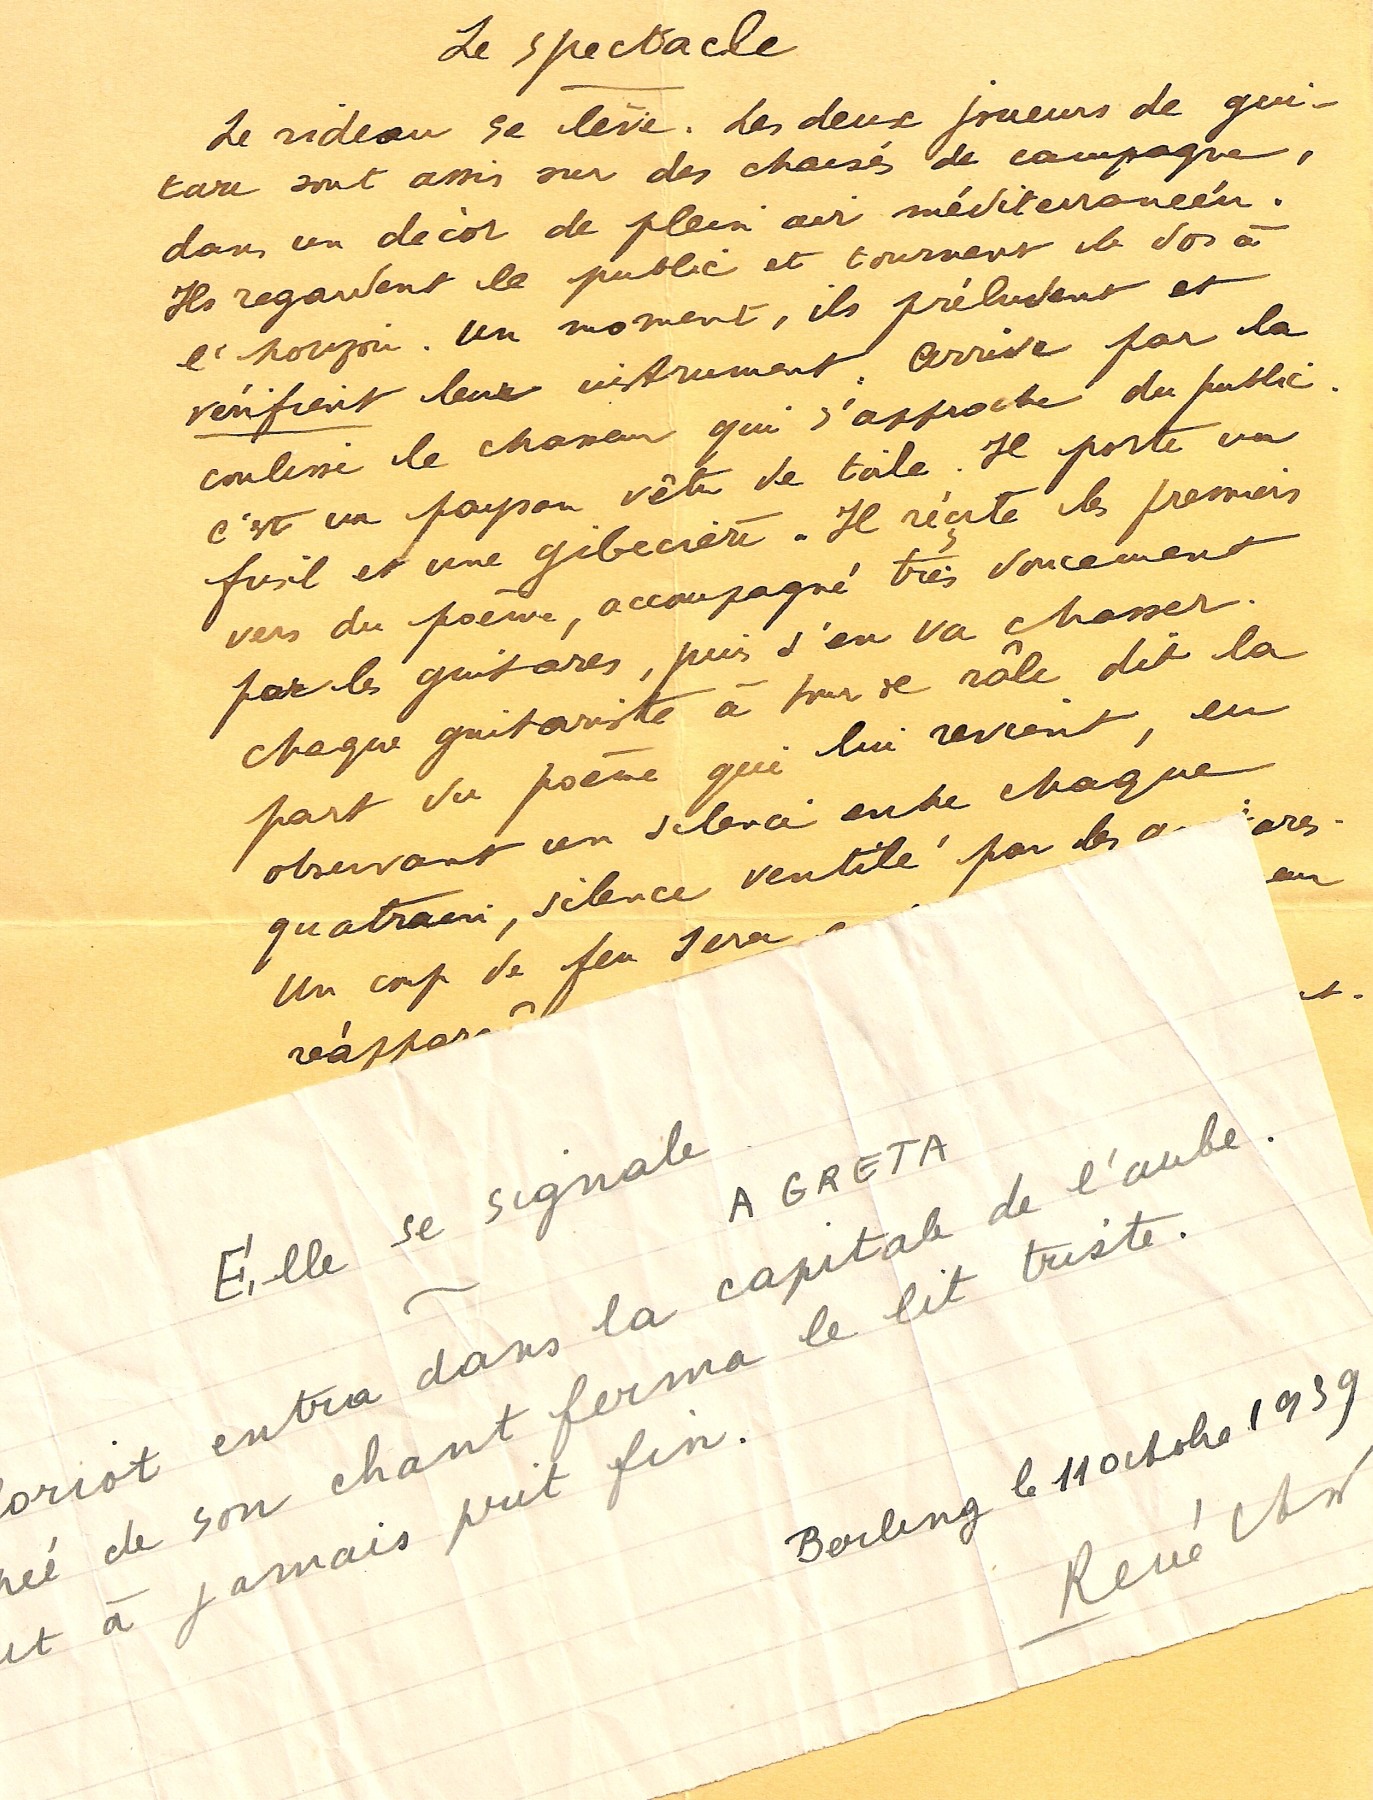 Le spectacle
Le rideau se lève. Les deux joueurs de gui-
tare sont assis sur des chaises de campagne,
dans un décor de plein air méditerranéen.
Ils regardent le public et tournent le dos à
l'horizon. Un moment, ils préludent et
vérifient leur instrument. Arrive par la
coulisse le chasseur qui s'approche du public.
C'est un paysan vêtu de toile. Il porte un
fusil et une gibecière. Il récite les premiers
vers du poème, accompagné très doucement
par les guitares, puis s'en va chasser.
Chaque guitariste à tour de rôle dit la
part du poème qui lui revient, en
observant un silence entre chaque
quatrain, silence ventilé par les
Un coup de feu sera
Elle se signale
A GRETA
entra dans la capitale de l'aube.
de son chant ferma le lit triste.
à jamais prit fin.
le 11 octobre 1939
René Char